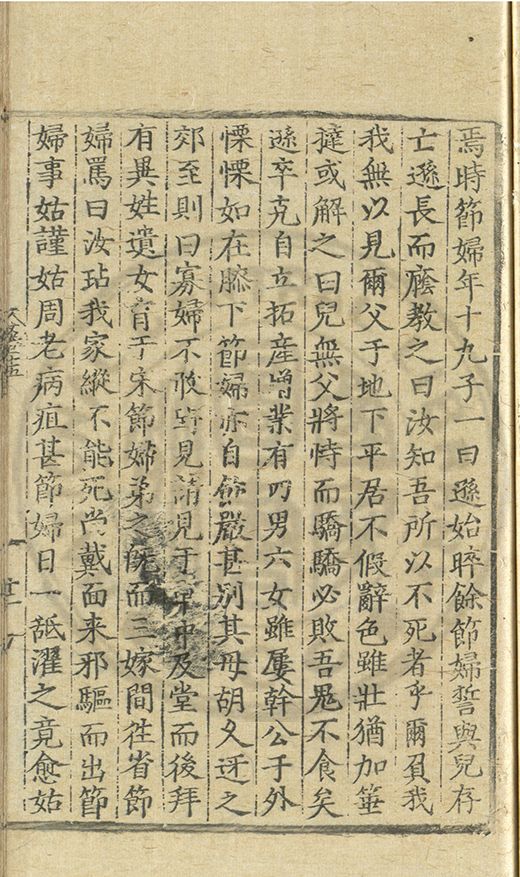 焉時節婦年十九子一曰遜始晬餘節婦誓與兒存
亡遜長而廕教之曰汝知吾所以不死者乎爾負我
我無以見爾父于地下平居不假辭色雖壯猶加箠
撻或解之曰兒無父將恃而驕驕必敗吾鬼不食矣
遜卒克自立拓産增業有四男六女雖屢幹公于外
慄慄如在膝下節婦亦自飭嚴甚别其母胡久迓之
郊至則曰寡婦不敢野見請見于中及堂而後拜
有異姓遺女育于宋節婦弟之既而三嫁間徃省節
婦罵曰汝玷我家縱不能死尚戴面来邪驅而出節
婦事姑謹姑周老病疽甚節婦日一舐濯之竟愈姑